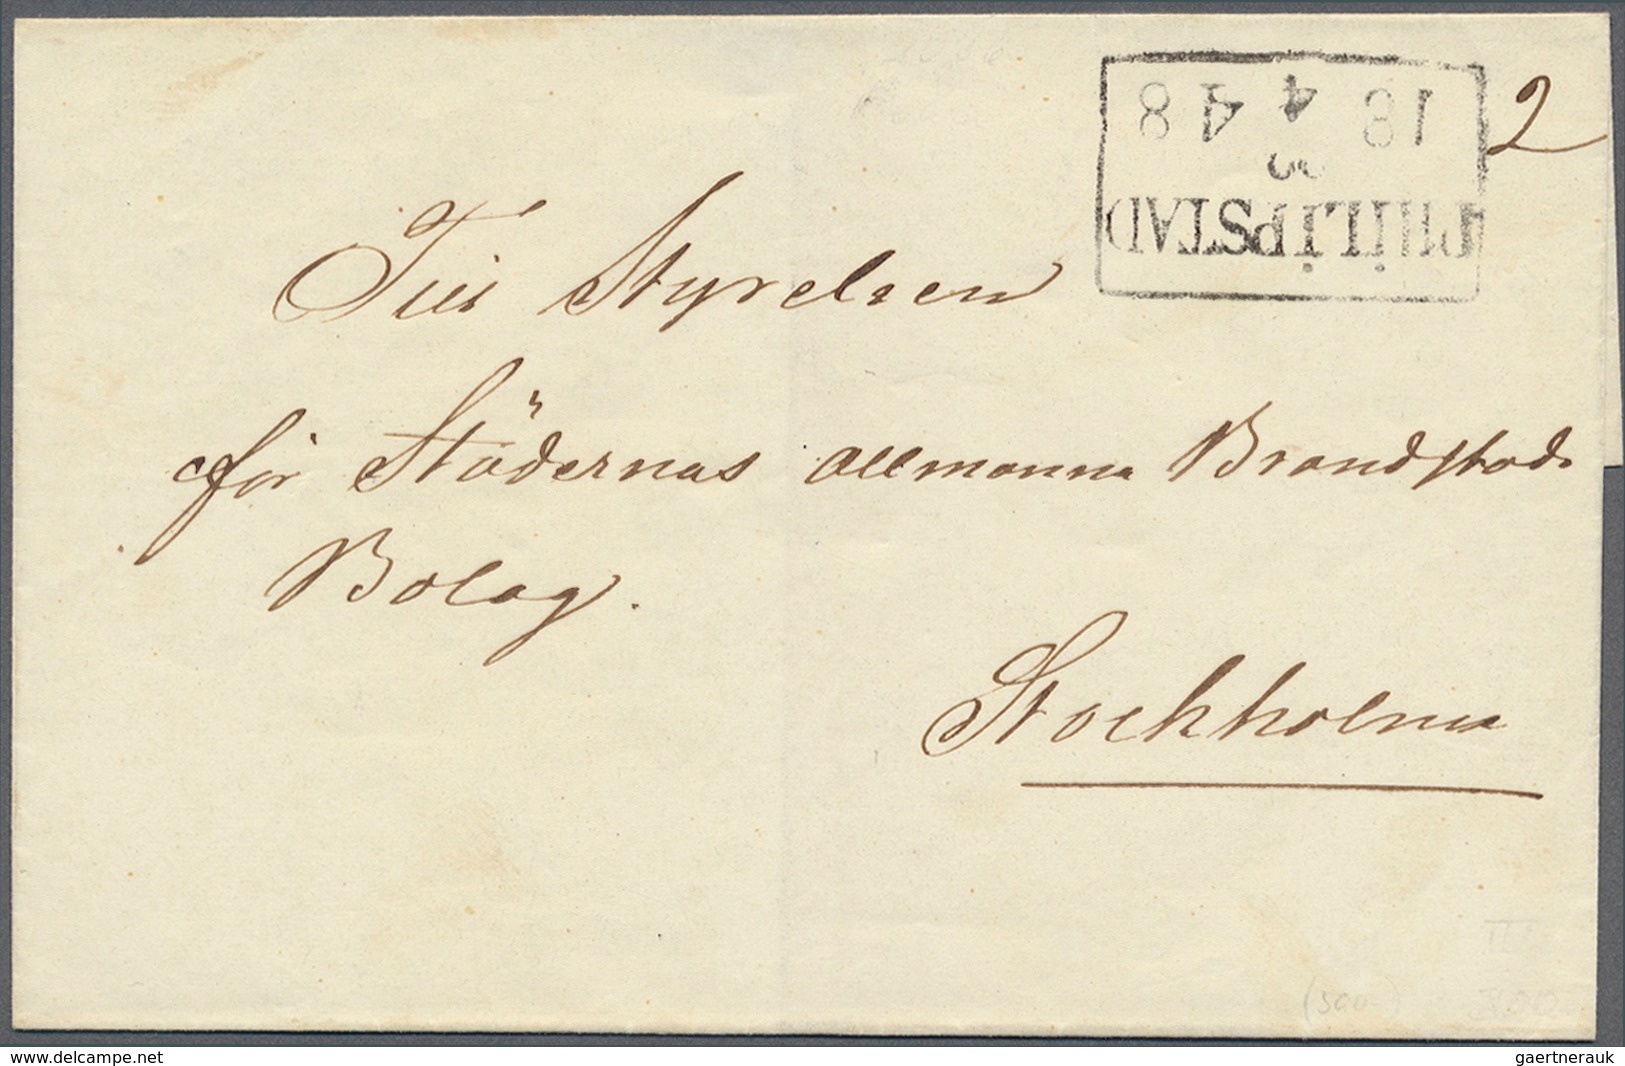 PHILIPSTAD
3
18 4 48
2
Till Styrelsen
för Städernas allmanna Brandstods
Bolag.
Stockholm
(300-)
III
delcampe.net
gaertnerauk